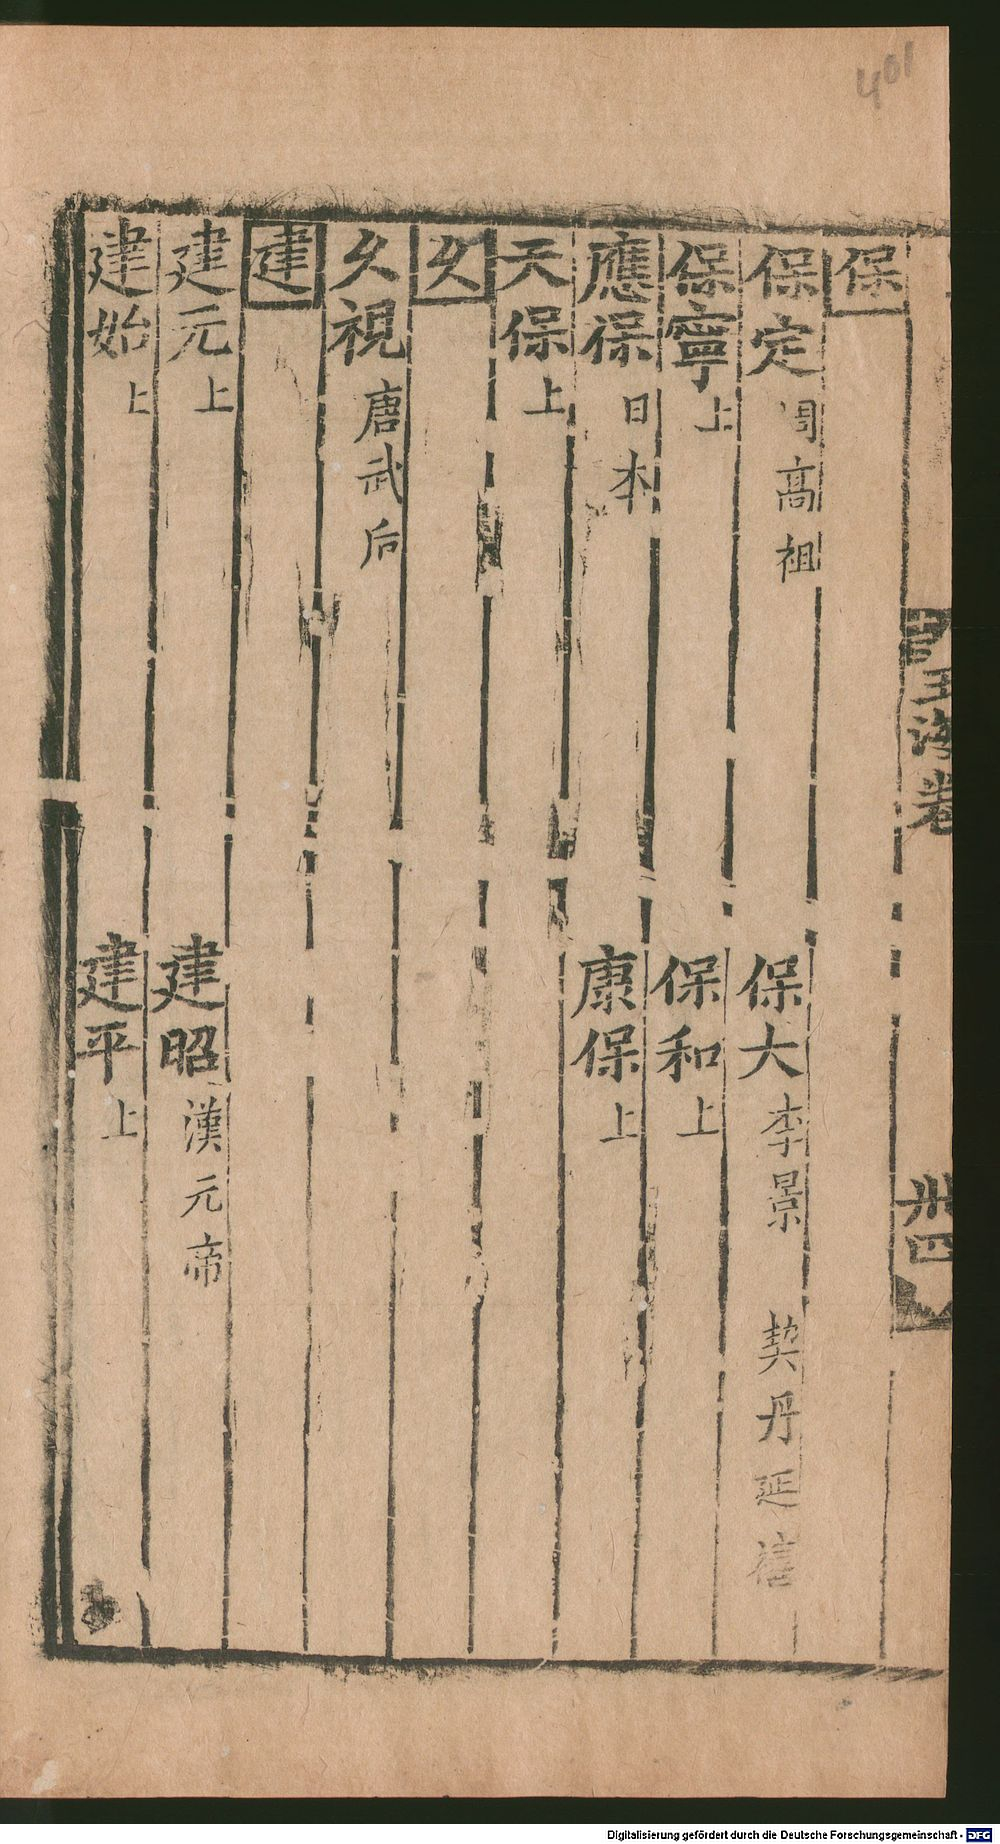 保
保定 周高祖 保大 李景 契丹延禧
保寧 上 保和 上
應保 日本 康保 上
天保 上
久
久視 唐武后
建
建元 上 建昭 漢元帝
建始 上 建平 上
玉海卷
卅四
401
Digitalisierung gefördert durch die Deutsche Forschungsgemeinschaft - DFG